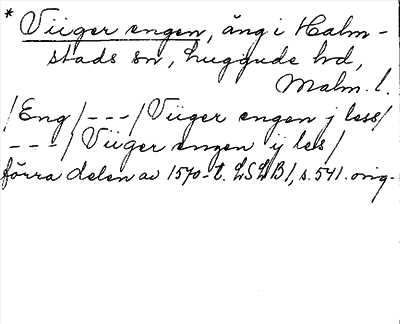 * Viiger engen, äng i Halm-
stads sn, Luggude hd,
Malm. l.
/Eng/---/Viiger engen j less/
---/Viiger engen ij les/
förra delen av 1570-t. LSLB1, s. 541. orig.